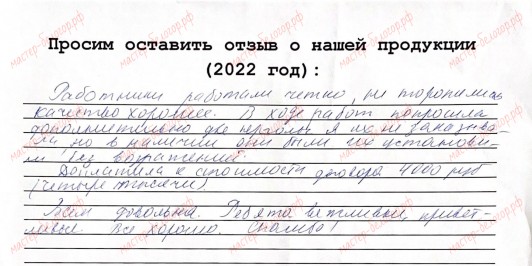 Просим оставить отзыв о нашей продукции
(2022 год):
Работники работали четко, не торопились
качество хорошее. В ходе работ попросила
дополнительно две перголы я их не заказыва-
ла но в наличии они были их установи-
ли без возражений.
Доплатила к стоимости договора 4000 руб
(четыре тысячи)
Всем довольна. Ребята вежливые, привет-
ливые. Все хорошо. Спасибо!
мастер-белогор.рф